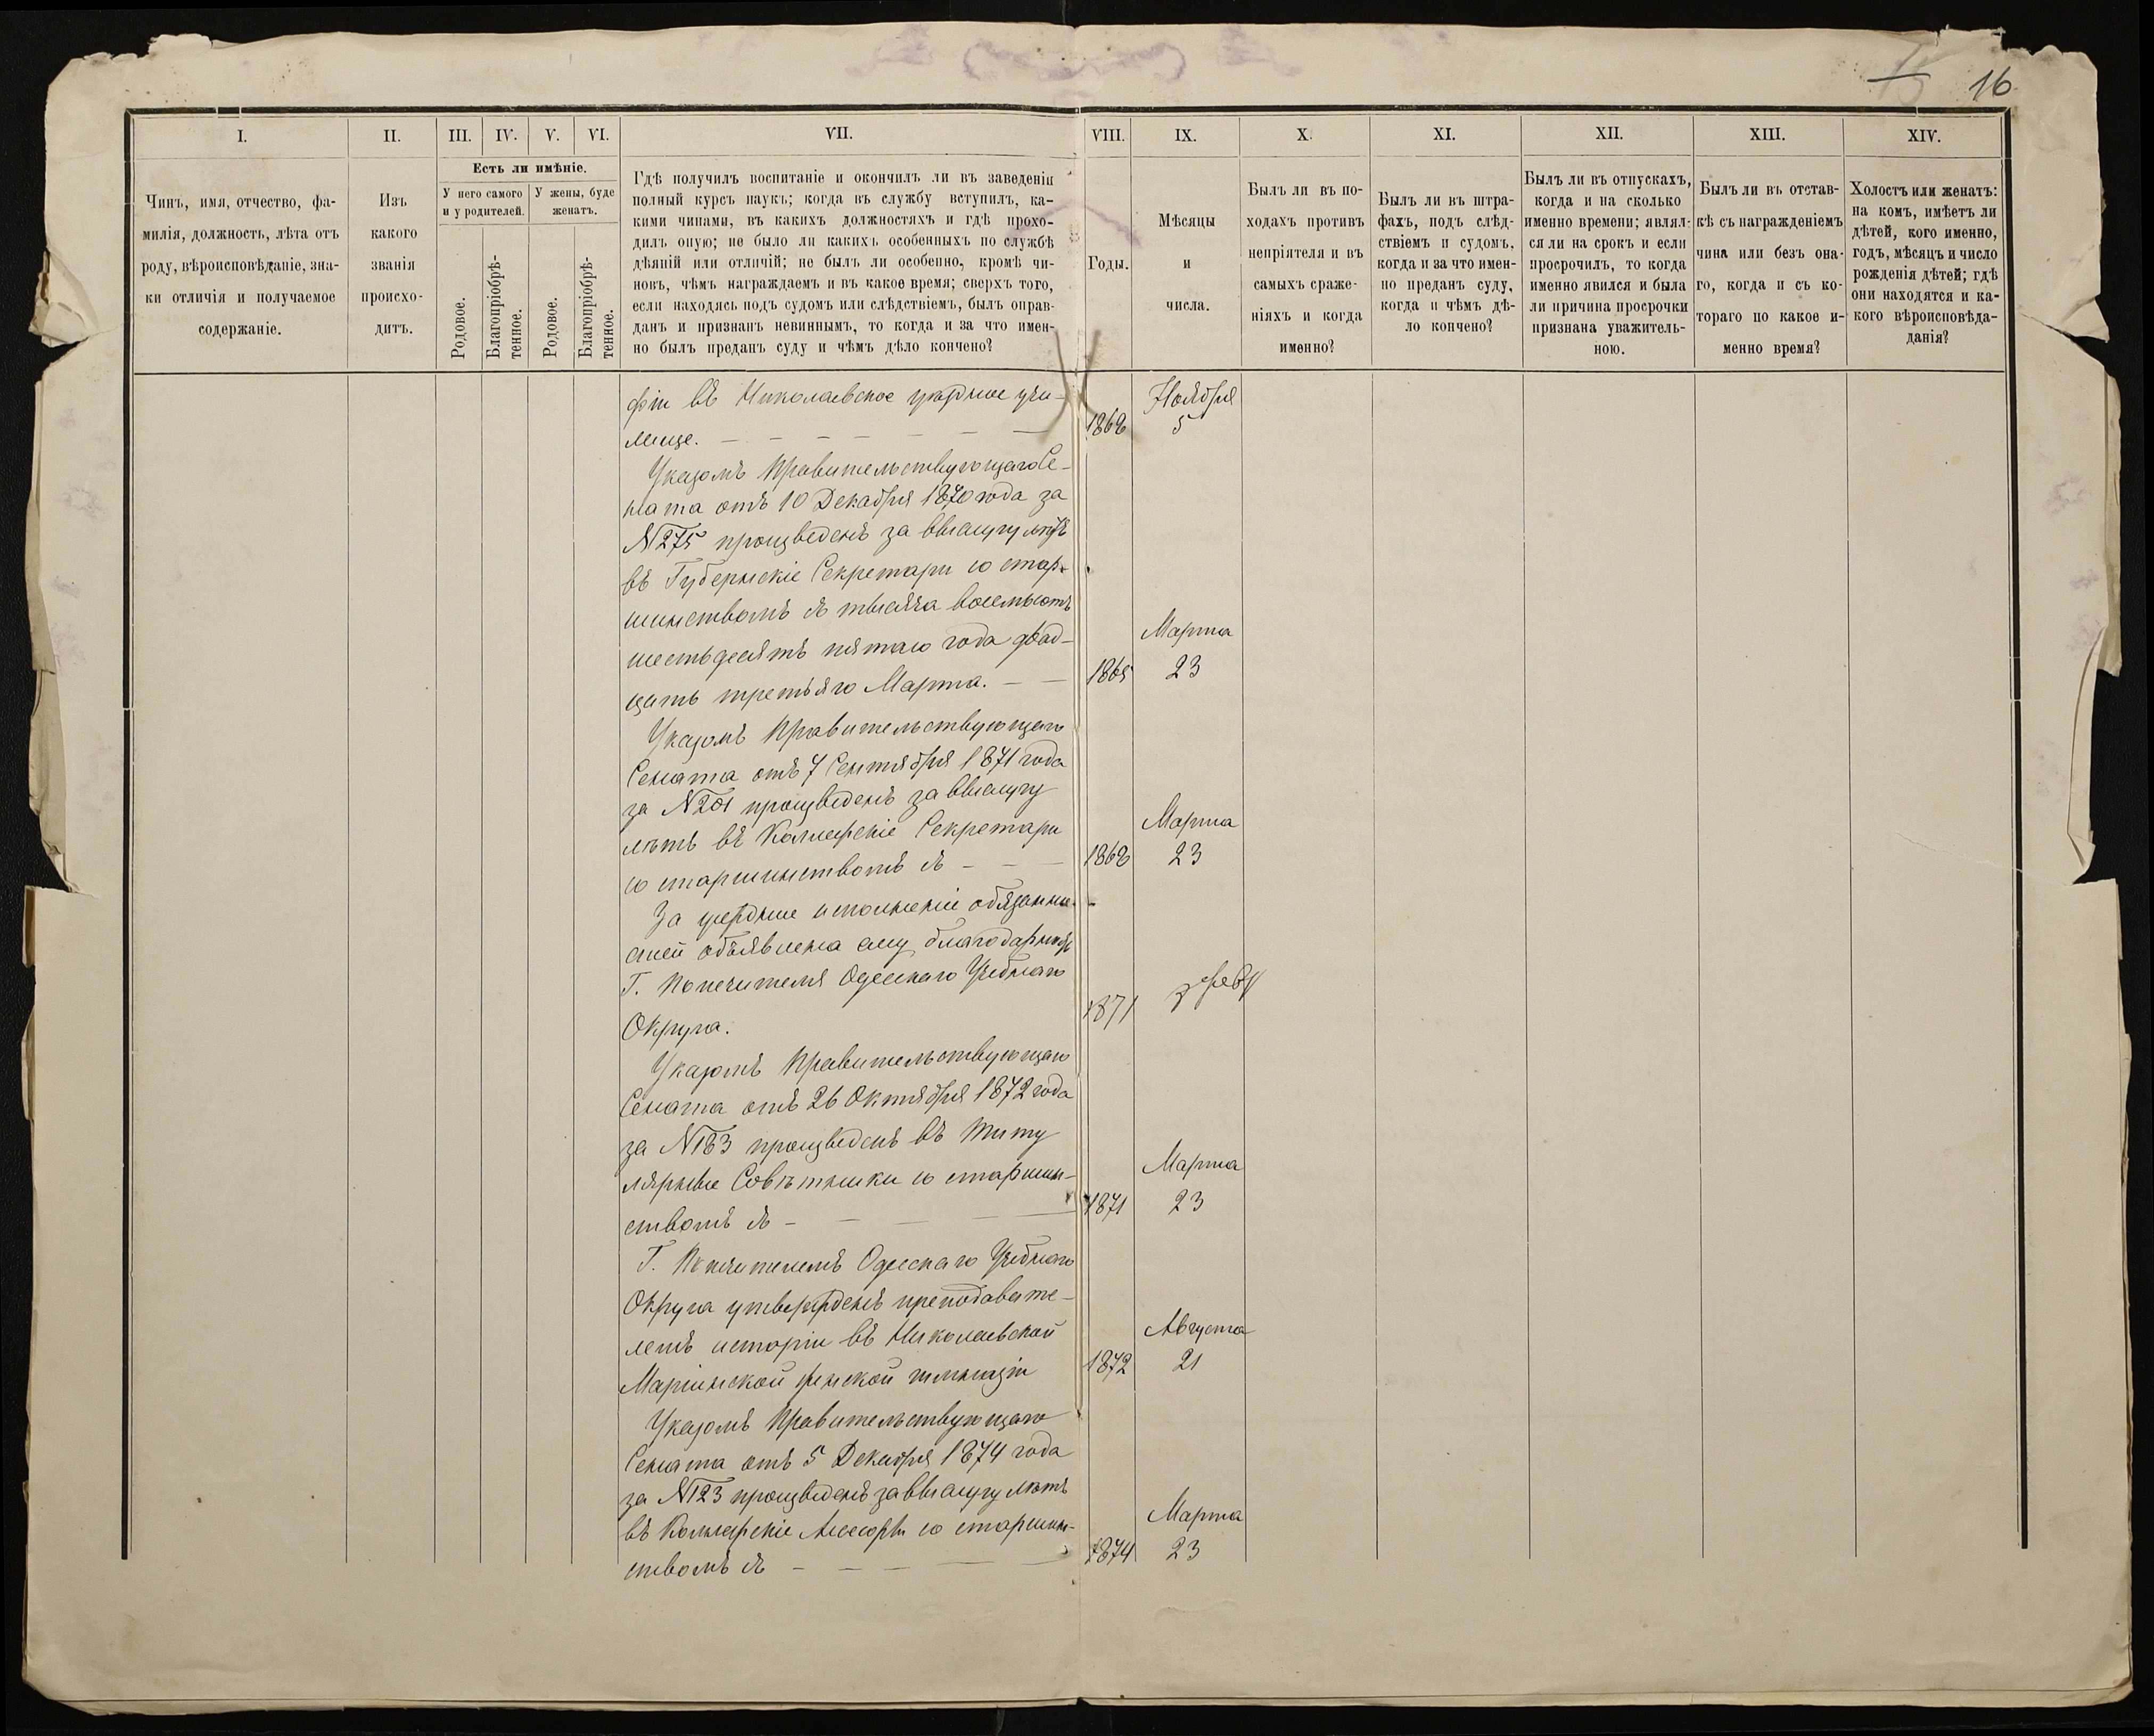 15 16
I. II. III. IV. V. VI. VII. VIII. IX. X. XI. XII. XIII. XIV.
Чинъ, имя, отчество, фа-
милія, должность, лѣта отъ
роду, вѣроисповѣданіе, зна-
ки отличія и получаемое
содержаніе.
Изъ
какого
званія
происхо-
дитъ.
Есть ли имѣніе.
У него самого
и у родителей.
У жены, буде
женатъ.
Родовое.
Благопріобрѣ-
тенное.
Родовое.
Благопріобрѣ-
тенное.
Гдѣ получилъ воспитаніе и окончилъ ли въ заведеніи
полный курсъ наукъ; когда въ службу вступилъ, ка-
кими чинами, въ какихъ должностяхъ и гдѣ прохо-
дилъ оную; не было ли какихъ особенныхъ по службѣ
дѣяній или отличій; не былъ ли особенно, кромѣ чи-
новъ, чѣмъ награждаемъ и въ какое время; сверхъ того,
если находясь подъ судомъ или слѣдствіемъ, былъ оправ-
данъ и признанъ невиннымъ, то когда и за что имен-
но былъ преданъ суду и чѣмъ дѣло кончено?
Годы.
Мѣсяцы
и
числа.
Былъ ли въ по-
ходахъ противъ
непріятеля и въ
самыхъ сраже-
ніяхъ и когда
именно?
Былъ ли въ штра-
фахъ, подъ слѣд-
ствіемъ и судомъ,
когда и за что имен-
но преданъ суду,
когда и чѣмъ дѣ-
ло кончено?
Былъ ли въ отпускахъ,
когда и на сколько
именно времени; являл-
ся ли на срокъ и если
просрочилъ, то когда
именно явился и была
ли причина просрочки
признана уважитель-
ною.
Былъ ли въ отстав-
кѣ съ награжденіемъ
чина или безъ она-
го, когда и съ ко-
тораго по какое и-
менно время?
Холостъ или женатъ:
на комъ, имѣетъ ли
дѣтей, кого именно,
годъ, мѣсяцъ и число
рожденія дѣтей; гдѣ
они находятся и ка-
кого вѣроисповѣда-
данія?
фіи въ Николаевское уѣздное учи- Ноября
лище. — — — — — — 1868 5
Указомъ Правительствующаго Се-
ната отъ 10 Декабря 1870 года за
№275 произведенъ за выслугу лѣтъ
въ Губернскіе Секретари со стар-
шинствомъ съ тысяча восемьсотъ
шестьдесятъ пятаго года двад- Марта
цать третьяго Марта. — — 1865 23
Указомъ Правительствующаго
Сената отъ 7 Сентября 1871 года
за №201 произведенъ за выслугу
лѣтъ въ Коллежскіе Секретари Марта
со старшинствомъ съ — — — 1868 23
За усердное исполненіе обязанно-
стей объявлена ему благодарность
Г. Попечителя Одесскаго Учебнаго
Округа. 1871 3 Февр
Указомъ Правительствующаго
Сената отъ 26 Октября 1872 года
за №183 произведенъ въ Титу
лярные Совѣтники со старшин- Марта
ствомъ съ — — — — 1871 23
Г. Попечителемъ Одесскаго Учебнаго
Округа утвержденъ преподавате-
лемъ исторіи въ Николаевской Августа
Маріинской женской гимназіи 1872 21
Указомъ Правительствующаго
Сената отъ 5 Декабря 1874 года
за №123 произведенъ за выслугу лѣтъ
въ Коллежскіе Ассесоры со старшин- Марта
ствомъ съ — — — 1874 23